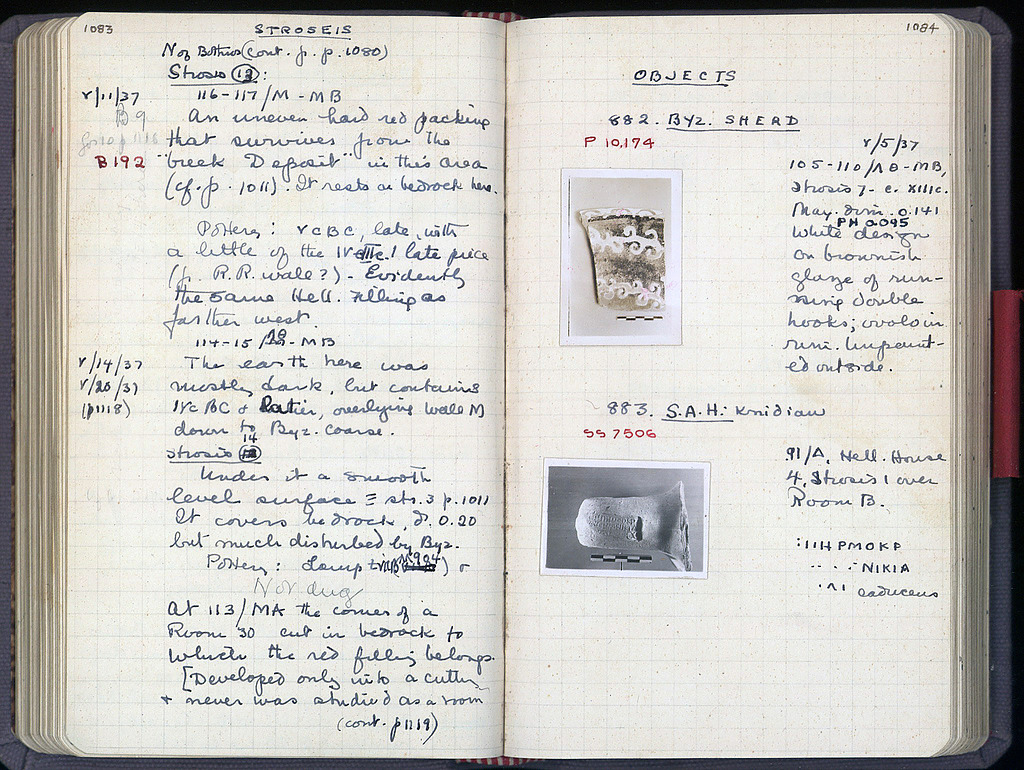 1083
STROSEIS
N of Bothros (cont. f. p. 1080)
Strosis 13:
V/11/37
116-117/M-MB
B 9
An uneven hard red packing
that survives from the
B192
"Greek Deposit" in this area
(cf. p. 1011). It rests on bedrock here.
Pottery: V c BC, late, with
a little of the IV & III c. 1 late piece
(f. R.R. wall?) - Evidently
the same Hell. filling as
farther west.
114-15/ -MB
V/14/37
The earth here was
V/20/37
mostly dark, but contains
(p1118)
IV c BC & later, overlying wall M
down to Byz. coarse.
Strosis 14
Under it a smooth
level surface ≡ str. 3 p. 1011
It covers bedrock, d. 0.20
but much disturbed by Byz.
Pottery: Lamp
Not dug
At 113/MA the corner of a
Room 30 cut in bedrock to
which the red filling belongs.
[Developed only into a cutting
+ never was studied as a room
(cont. p1119)
1084
OBJECTS
882. BYZ. SHERD
P 10,174
V/5/37
105-110/ -MB,
Strosis 7 - c. XIII c.
Max. dim. 0.141
PH 0.095
White design
on brownish
glaze of run-
ning double
hooks; ovolo in
rim. Unpaint-
ed outside.
883. S.A.H. Knidian
SS 7506
91/A, Hell. House
4, Strosis 1 over
Room B.
ΝΙΚΙΑ
caduceus